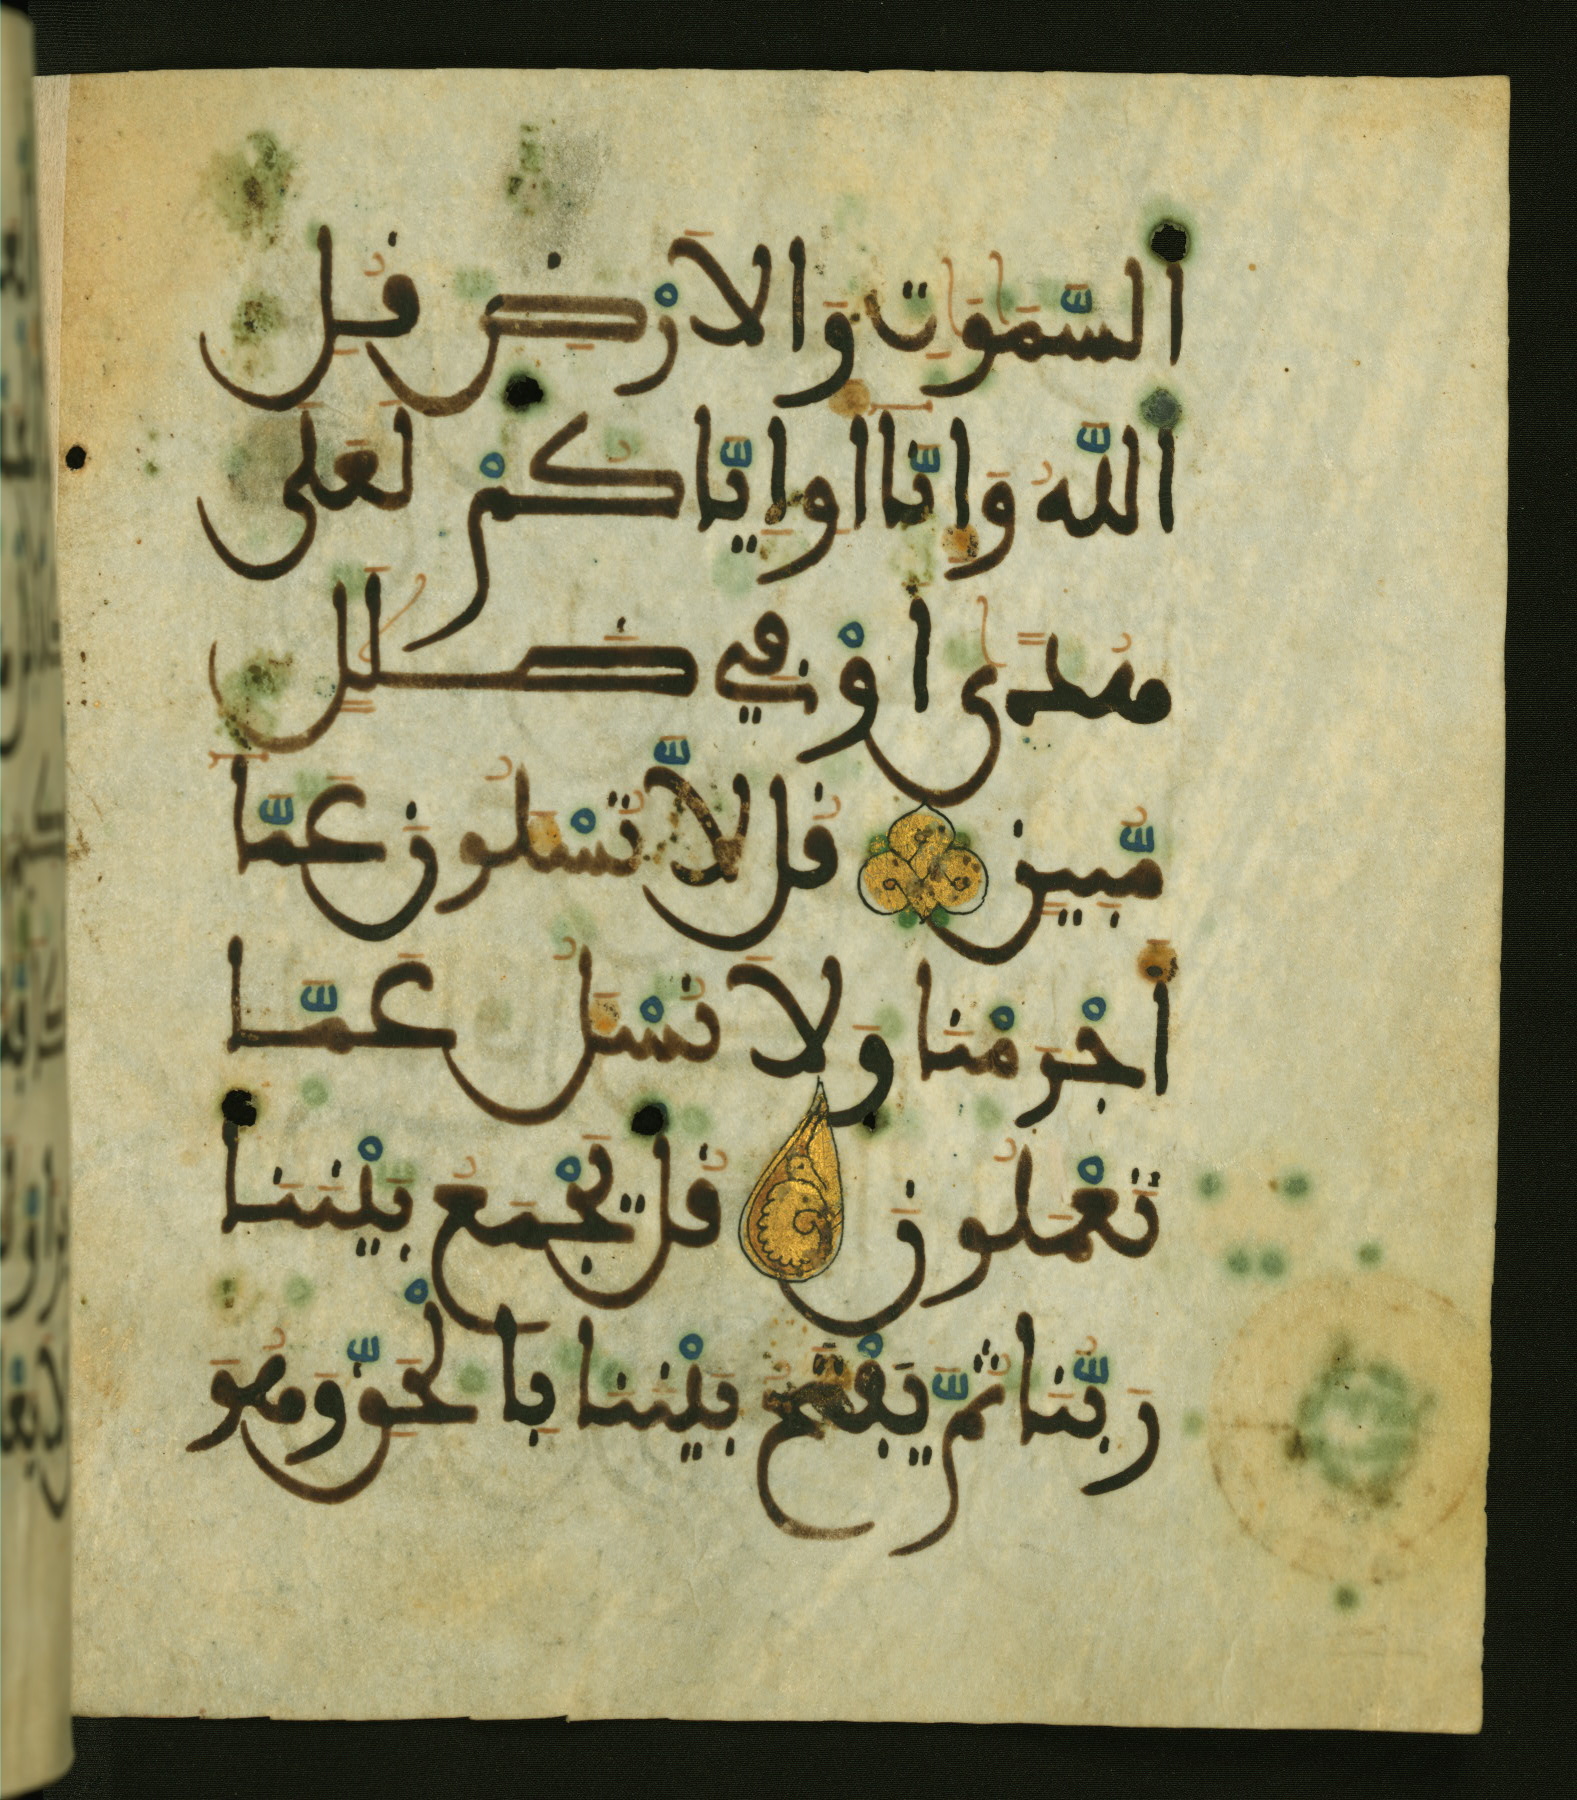 السَّمَوَٰتِ وَالَارْضِ قُلِ
اللَّهُ وَإِنَّا أَوِ ايَّاكُمْ لَعَلَى
هُدًى أَوْ فِي ضَلَٰلٍ
مُّبِينٍ قُل لَّا تُسْـَٔلُونَ عَمَّا
أَجْرَمْنَا وَلَا نُسْـَٔلُ عَمَّا
تَعْمَلُونَ قُلْ يَجْمَعُ بَيْنَنَا
رَبُّنَا ثُمَّ يَفْتَحُ بَيْنَنَا بِالْحَقِّ وَهُوَ